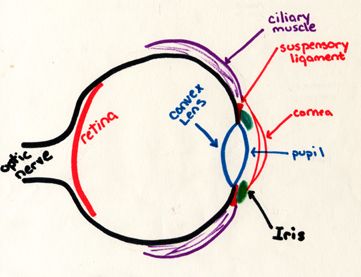 ciliary
muscle
suspensory
ligament
convex
Lens
cornea
retina
pupil
optic
nerve
Iris